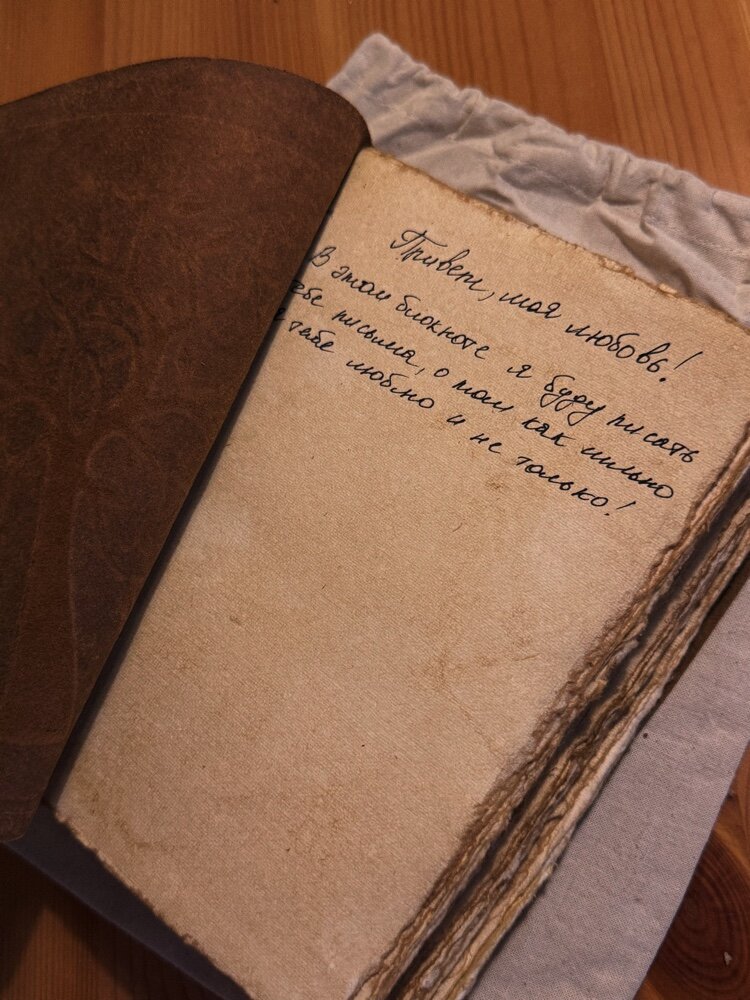 Привет, моя любовь!
В этом блокноте я буду писать
ебе письма, о том как сильно
тебе люблю и не только!